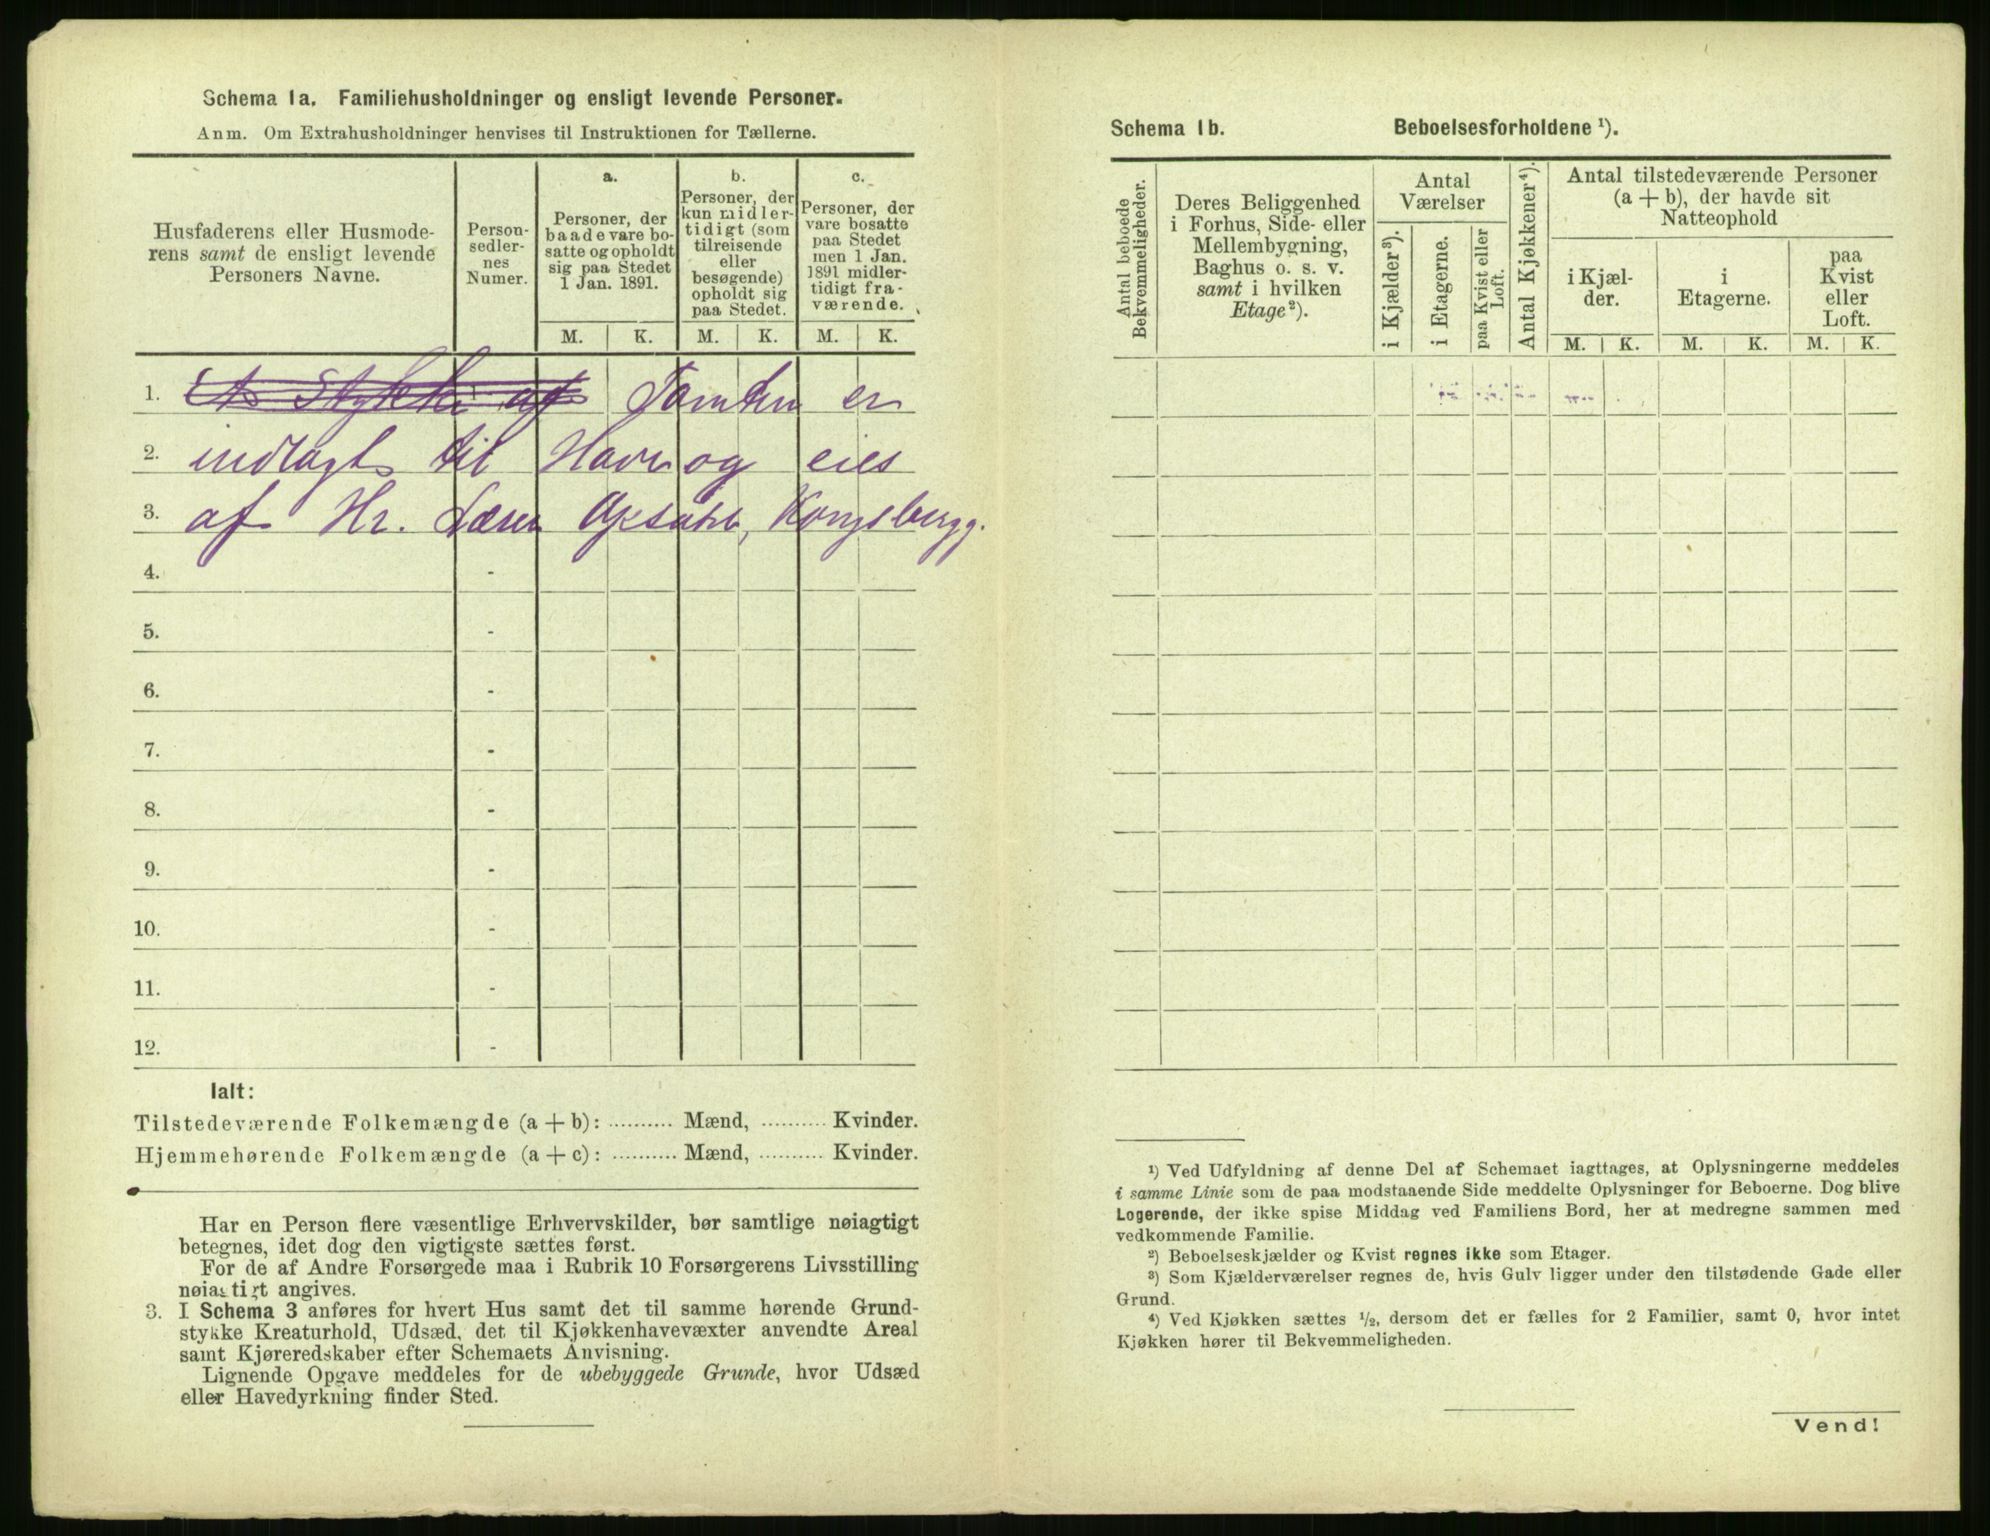 Schema 1a. Familiehusholdninger og ensligt levende Personer.
Anm. Om Extrahusholdninger henvises til Instruktionen for Tællerne.
Husfaderens eller Husmode-
rens samt de ensligt levende
Personers Navne.
Person-
sedler-
nes
Numer.
a.
Personer, der
baade vare bo-
satte og opholdt
sig paa Stedet
1 Jan. 1891.
b.
Personer, der
kun midler-
tidigt (som
tilreisende
eller
besøgende)
opholdt sig
paa Stedet.
c.
Personer, der
vare bosatte
paa Stedet
men 1 Jan.
1891 midler-
tidigt fra-
værende.
M. K. M. K. M. K.
1. Et Stykke af Tomten er
2. indlagt til Have og eies
3. af Hr. Kongsbergg.
4. -
5. -
6. -
7. -
8. -
9. -
10. -
11. -
12. -
Ialt:
Tilstedeværende Folkemængde (a + b): .......... Mænd, .......... Kvinder.
Hjemmehørende Folkemængde (a + c): .......... Mænd, .......... Kvinder.
Har en Person flere væsentlige Erhvervskilder, bør samtlige nøiagtigt
betegnes, idet dog den vigtigste sættes først.
For de af Andre Forsørgede maa i Rubrik 10 Forsørgerens Livsstilling
nøiagtigt angives.
3. I Schema 3 anføres for hvert Hus samt det til samme hørende Grund-
stykke Kreaturhold, Udsæd, det til Kjøkkenhavevæxter anvendte Areal
samt Kjøreredskaber efter Schemaets Anvisning.
Lignende Opgave meddeles for de ubebyggede Grunde, hvor Udsæd
eller Havedyrkning finder Sted.
Schema 1b. Beboelsesforholdene ¹).
Antal beboede
Bekvemmeligheder.
Deres Beliggenhed
i Forhus, Side- eller
Mellembygning,
Baghus o. s. v.
samt i hvilken
Etage²).
Antal
Værelser
i Kjælder³).
i Etagerne.
paa Kvist eller
Loft.
Antal Kjøkkener⁴).
Antal tilstedeværende Personer
(a + b), der havde sit
Natteophold
i Kjæl-
der.
i
Etagerne.
paa
Kvist
eller
Loft.
M. K. M. K. M. K.
¹) Ved Udfyldning af denne Del af Schemaet iagttages, at Oplysningerne meddeles
i samme Linie som de paa modstaaende Side meddelte Oplysninger for Beboerne. Dog blive
Logerende, der ikke spise Middag ved Familiens Bord, her at medregne sammen med
vedkommende Familie.
²) Beboelseskjælder og Kvist regnes ikke som Etager.
³) Som Kjælderværelser regnes de, hvis Gulv ligger under den tilstødende Gade eller
Grund.
⁴) Ved Kjøkken sættes ½, dersom det er fælles for 2 Familier, samt 0, hvor intet
Kjøkken hører til Bekvemmeligheden.
Vend!